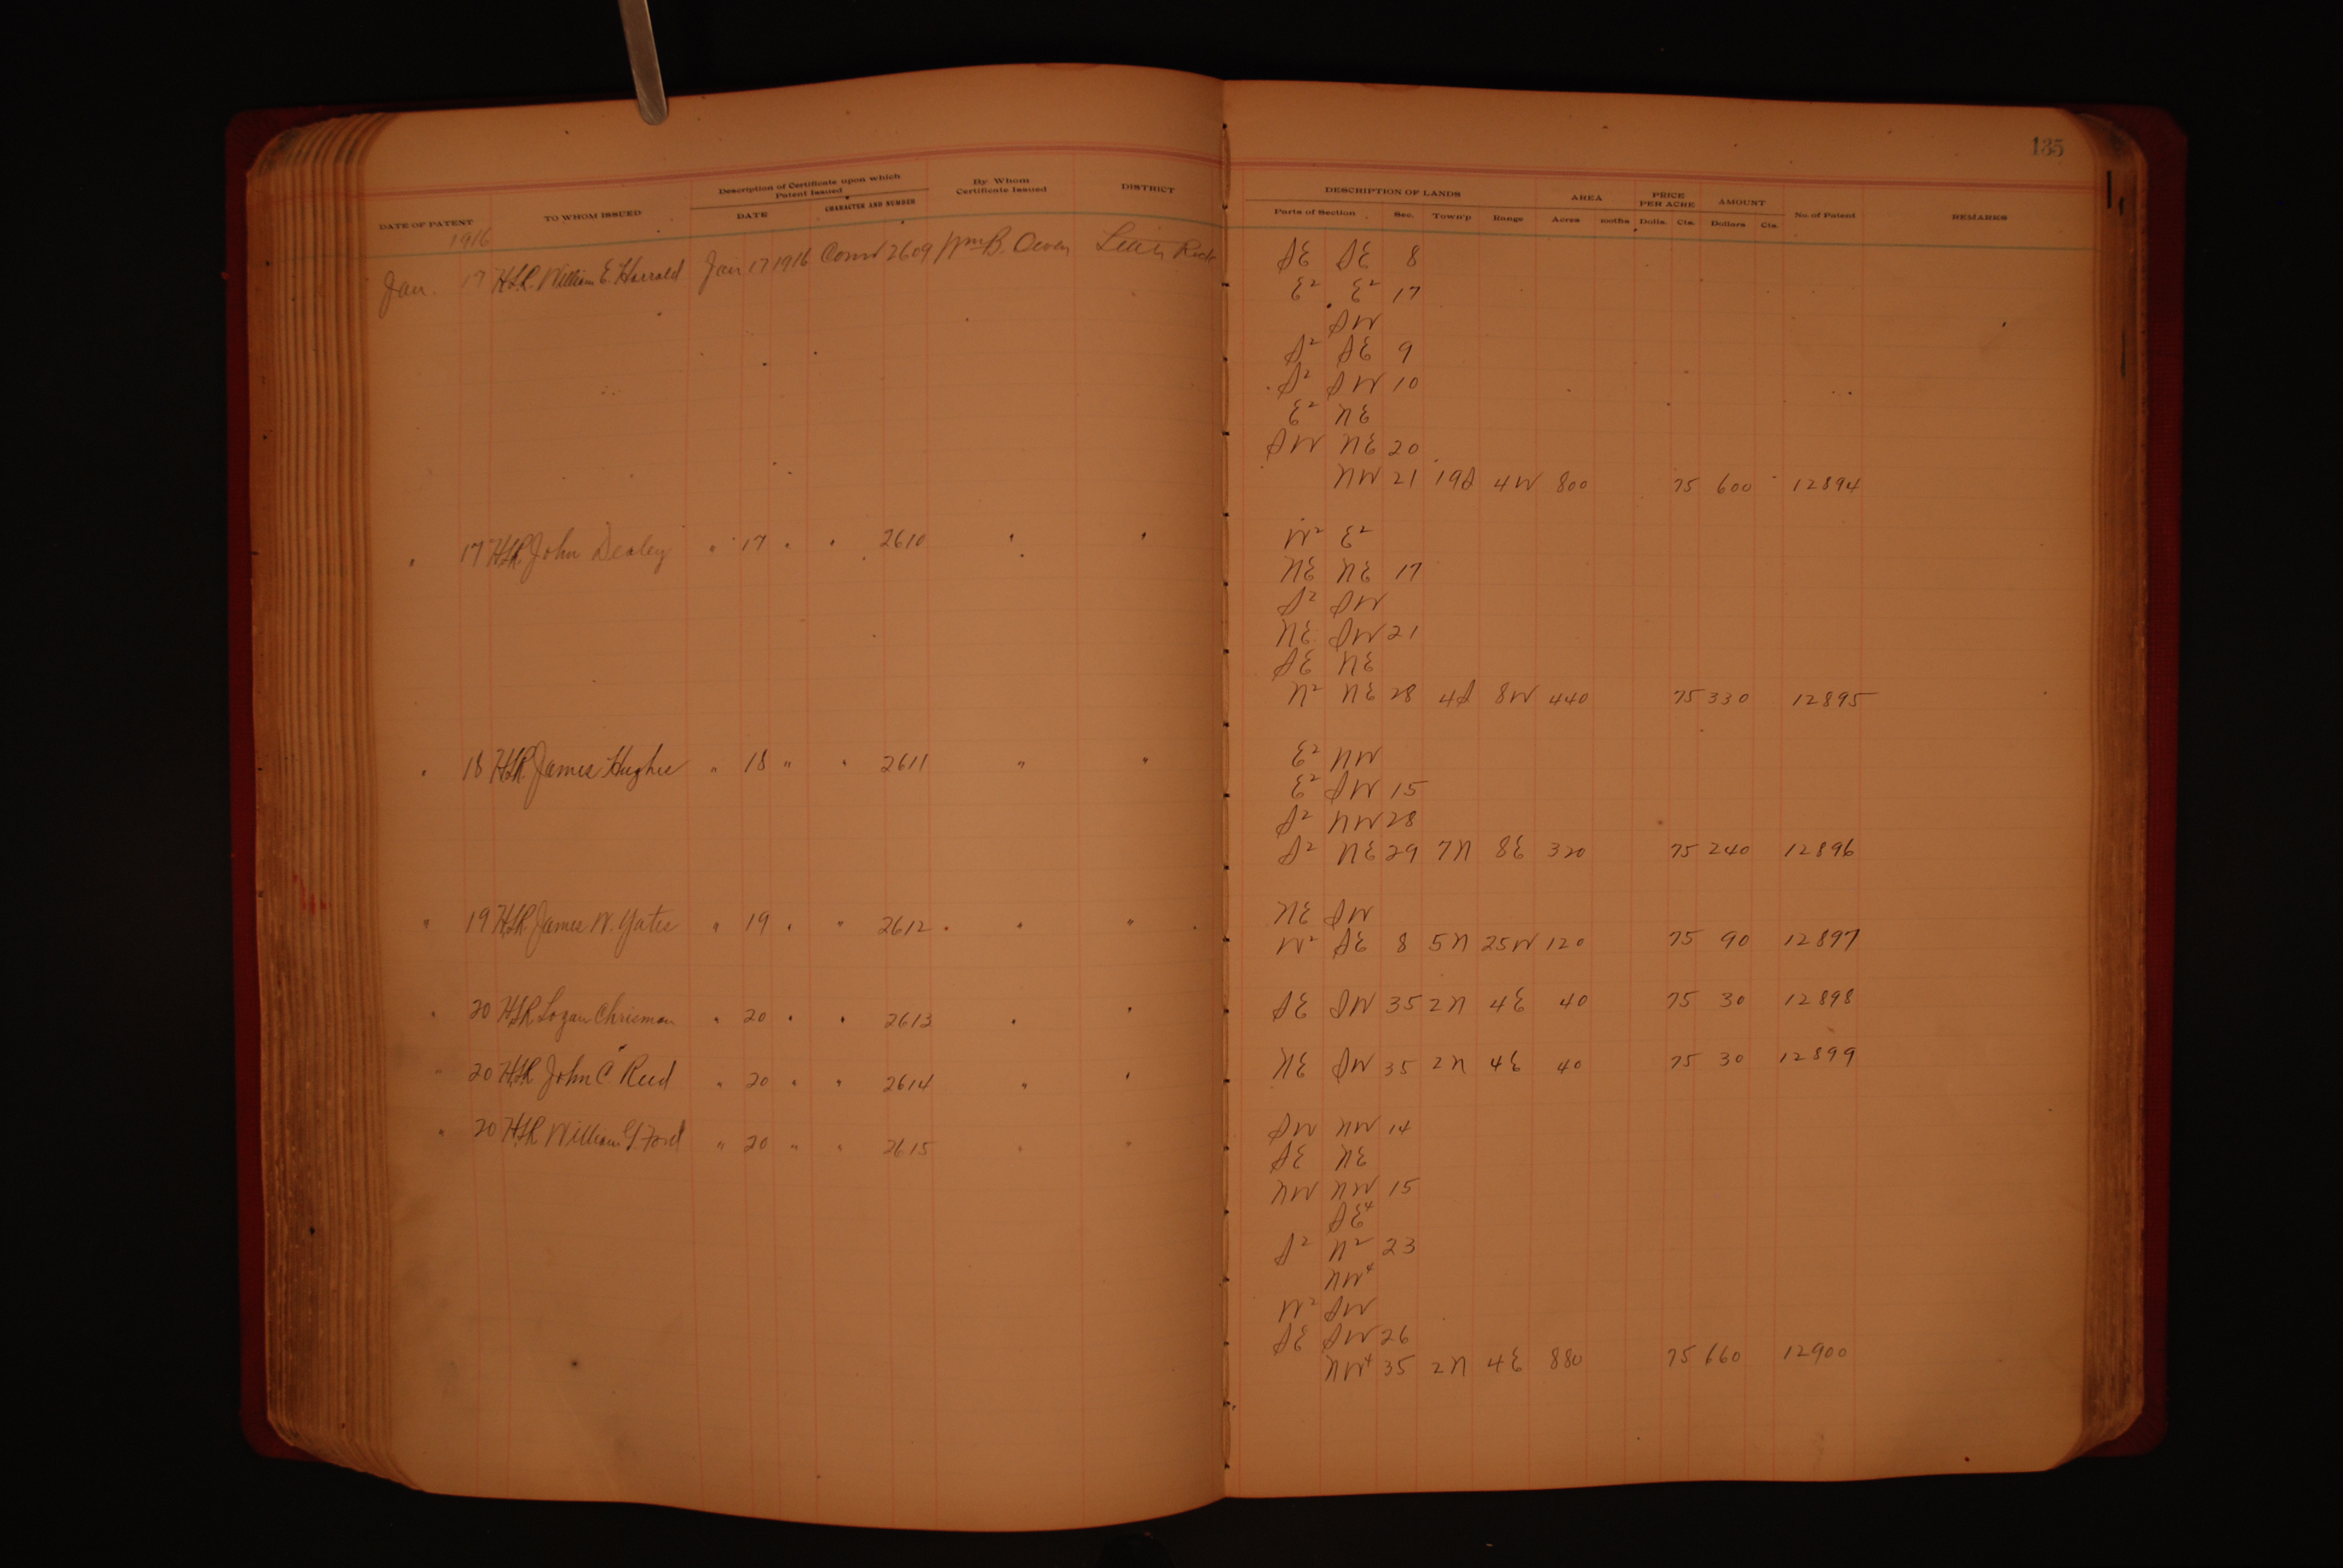 135
DATE OF PATENT TO WHOM ISSUED Description of Certificate upon which Patent Issued DATE CHARACTER AND NUMBER By Whom Certificate Issued DISTRICT DESCRIPTION OF LANDS Parts of Section Sec. Town'p Range AREA Acres 100ths PRICE PER ACRE Dolls. Cts. AMOUNT Dollars Cts. No. of Patent REMARKS
1916
Jan. 17 William E. Harrald Jan 17 1916 2609 Wm B. Owen SE SE 8
E² E² 17
SW
S² SE 9
S² SW 10
E² NE
SW NE 20
NW 21 19S 4W 800 75 600 12894
" 17 John Dealey " 17 " " 2610 " " W² E²
NE NE 17
S² SW
NE SW 21
SE NE
N² NE 28 4S 8W 440 75 330 12895
" 18 James Hughes " 18 " " 2611 " " E² NW
E² SW 15
S² NW 28
S² NE 29 7N 8E 320 75 240 12896
" 19 James W. Yates " 19 " " 2612 " " NE SW
W² SE 8 5N 25W 120 75 90 12897
" 20 Logan Chrisman " 20 " " 2613 " " SE SW 35 2N 4E 40 75 30 12898
" 20 John C. Reed " 20 " " 2614 " " NE SW 35 2N 4E 40 75 30 12899
" 20 William G. Ford " 20 " " 2615 " " SW NW 14
SE NE
NW NW 15
SE⁴
S² N² 23
NW⁴
W² SW
SE SW 26
NW⁴ 35 2N 4E 880 75 660 12900